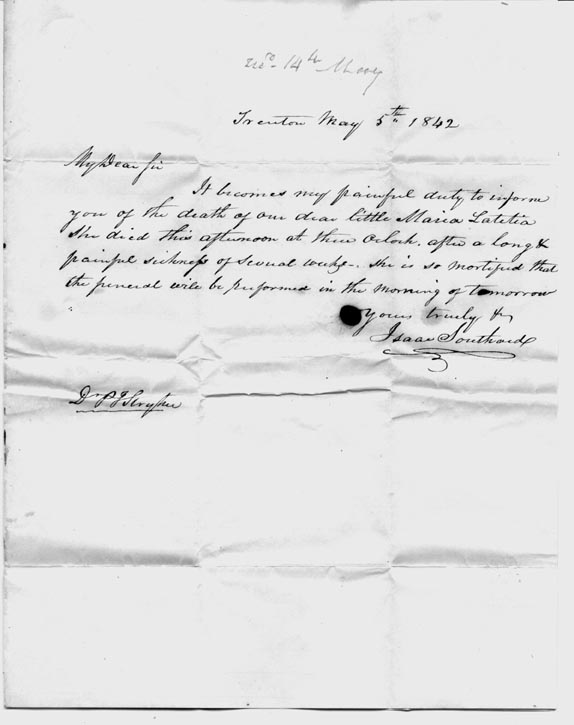 14th
Trenton May 5th 1842
My Dear Sir
It becomes my painful duty to inform
you of the death of our dear little Maria Latetia
She died this afternoon at three Oclock, after a long &
painful sickness of several weeks. She is so mortified that
the funeral will be performed in the morning of tomorrow
Yours truly &
Isaac Southard
Dr P I Stryker